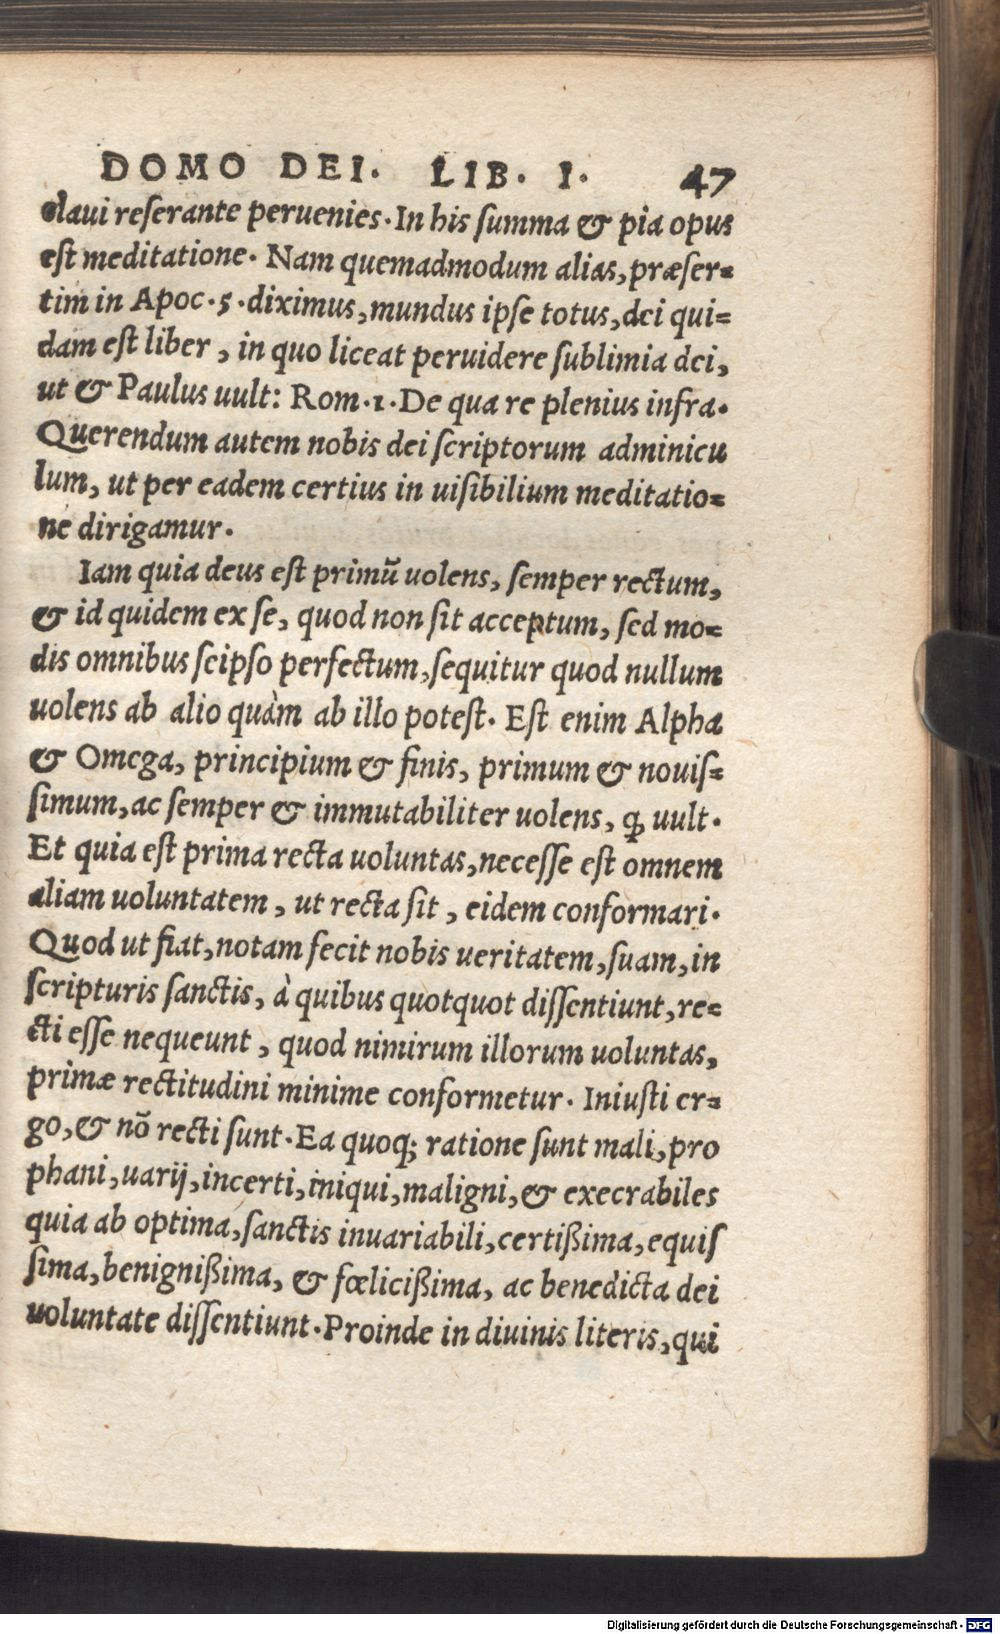 DOMO DEI. LIB. I. 47
claui reſerante peruenies. In his ſumma & pia opus
eſt meditatione. Nam quemadmodum alias, præſer=
tim in Apoc. 5. diximus, mundus ipſe totus, dei qui=
dam eſt liber, in quo liceat peruidere ſublimia dei,
ut & Paulus uult: Rom. 1. De qua re plenius infra.
Querendum autem nobis dei ſcriptorum adminicu
lum, ut per eadem certius in uiſibilium meditatio=
ne dirigamur.
Iam quia deus eſt primū uolens, ſemper rectum,
& id quidem ex ſe, quod non ſit acceptum, ſed mo=
dis omnibus ſeipſo perfectum, ſequitur quod nullum
uolens ab alio quàm ab illo poteſt. Eſt enim Alpha
& Omega, principium & finis, primum & nouiſ=
ſimum, ac ſemper & immutabiliter uolens, ꝙ uult.
Et quia eſt prima recta uoluntas, neceſſe eſt omnem
aliam uoluntatem, ut recta ſit, eidem conformari.
Quod ut fiat, notam fecit nobis ueritatem, ſuam, in
ſcripturis ſanctis, à quibus quotquot diſſentiunt, re=
cti eſſe nequeunt, quod nimirum illorum uoluntas,
primæ rectitudini minime conformetur. Iniuſti er=
go, & nō recti ſunt. Ea quoq; ratione ſunt mali, pro
phani, uarij, incerti, iniqui, maligni, & execrabiles
quia ab optima, ſanctis inuariabili, certißima, equiſ
ſima, benignißima, & fœlicißima, ac benedicta dei
uoluntate diſſentiunt. Proinde in diuinis literis, qui
Digitalisierung gefördert durch die Deutsche Forschungsgemeinschaft - DFG